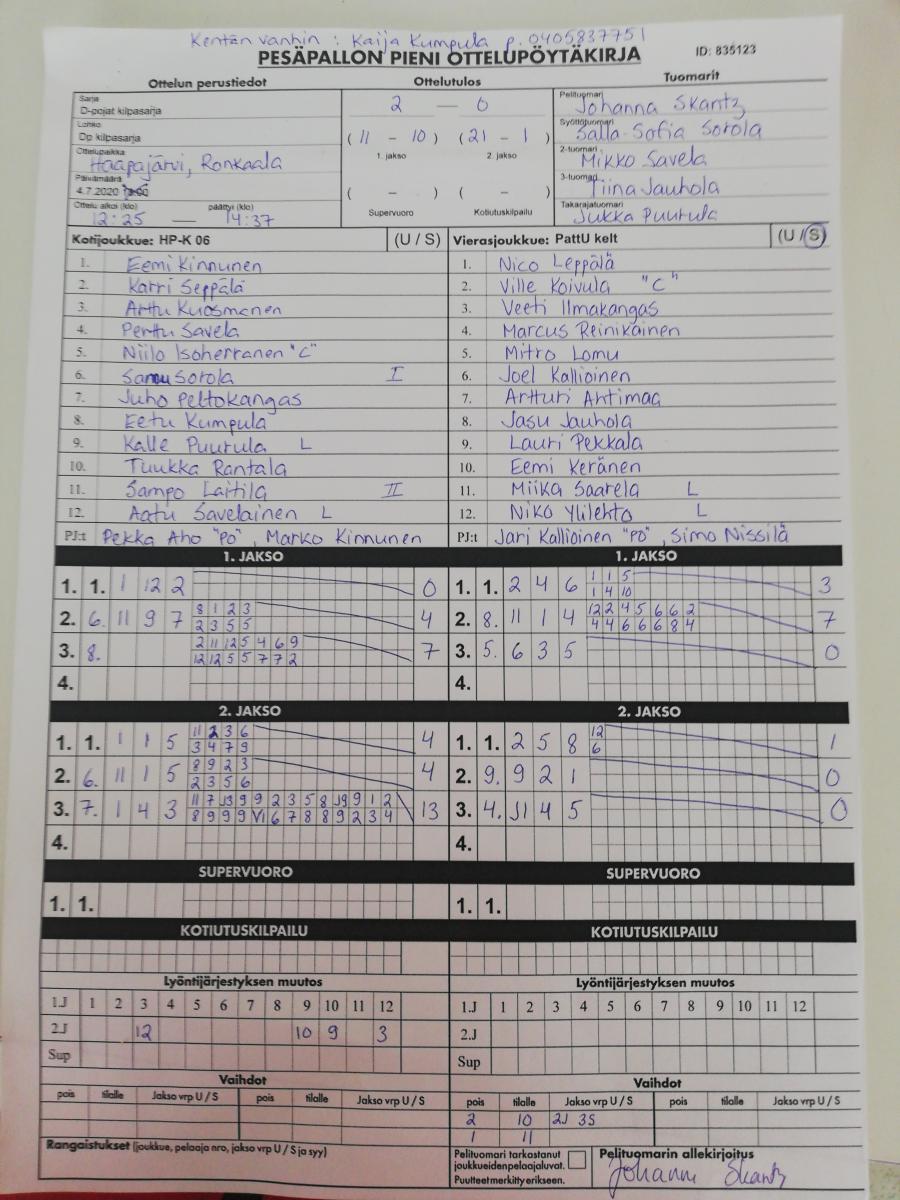 Kentän vanhin : Kaija Kumpula p. 0405837751
PESÄPALLON PIENI OTTELUPÖYTÄKIRJA ID: 835123
Ottelun perustiedot Ottelutulos Tuomarit
Sarja
D-pojat kilpasarja
Lohko
Dp kilpasarja
Ottelupaikka
Haapajärvi, Ronkaala
Päivämäärä
4.7.2020
Ottelu alkoi (klo) päättyi (klo)
12:25 — 14:37
2 — 0
( 11 - 10 ) ( 21 - 1 )
1. jakso 2. jakso
( - ) ( - )
Supervuoro Kotiutuskilpailu
Pelituomari
Johanna Skantz
Syöttötuomari
Salla-Sofia Sorola
2-tuomari
Mikko Savela
3-tuomari
Tiina Jauhola
Takarajatuomari
Jukka Puurula
Kotijoukkue: HP-K 06 (U / S)
1. Eemi Kinnunen
2. Karri Seppälä
3. Arttu Kuosmanen
4. Perttu Savela
5. Niilo Isoherranen "C"
6. Samu Sorola I
7. Juho Peltokangas
8. Eetu Kumpula
9. Kalle Puurula L
10. Tuukka Rantala
11. Sampo Laitila II
12. Aatu Savelainen L
PJ:t Pekka Aho "PO", Marko Kinnunen
Vierasjoukkue: PattU kelt (U / S)
1. Nico Leppälä
2. Ville Koivula "C"
3. Veeti Ilmakangas
4. Marcus Reinikainen
5. Mitro Lomu
6. Joel Kallioinen
7. Artturi Ahtimaa
8. Jasu Jauhola
9. Lauri Pekkala
10. Eemi Keränen
11. Miika Saarela L
12. Niko Ylilehto L
PJ:t Jari Kallioinen "PO", Simo Nissilä
1. JAKSO
1. 1. 1 12 2 0
2. 6. 11 9 7 8 1 2 3 4
2 3 5 5
3. 8. 2 11 12 5 4 6 9 7
12 12 5 5 7 7 2
4.
1. JAKSO
1. 1. 2 4 6 1 1 5 3
1 4 10
2. 8. 11 1 4 12 2 4 5 6 6 2 7
4 4 6 6 6 8 4
3. 5. 6 3 5 0
4.
2. JAKSO
1. 1. 1 1 5 11 2 3 6 4
3 4 7 9
2. 6. 11 1 5 8 9 2 3 4
2 3 5 6
3. 7. 1 4 3 11 7 9 9 2 3 5 8 9 1 2 13
8 9 9 9 6 7 8 8 9 2 3 4
4.
2. JAKSO
1. 1. 2 5 8 12 1
6
2. 9. 9 2 1 0
3. 4. 11 4 5 0
4.
SUPERVUORO SUPERVUORO
1. 1. 1. 1.
KOTIUTUSKILPAILU KOTIUTUSKILPAILU
Lyöntijärjestyksen muutos Lyöntijärjestyksen muutos
1.J 1 2 3 4 5 6 7 8 9 10 11 12 1.J 1 2 3 4 5 6 7 8 9 10 11 12
2.J 12 10 9 3 2.J
Sup Sup
Vaihdot Vaihdot
pois tilalle Jakso vrp U / S pois tilalle Jakso vrp U / S pois tilalle Jakso vrp U / S pois tilalle Jakso vrp U / S
2 10 2J 3S
1 11
Rangaistukset (joukkue, pelaaja nro, jakso vrp U / S ja syy)
Pelituomari tarkastanut
joukkueidenpelaajaluvat.
Puutteetmerkittyerikseen.
Pelituomarin allekirjoitus
Johanna Skantz